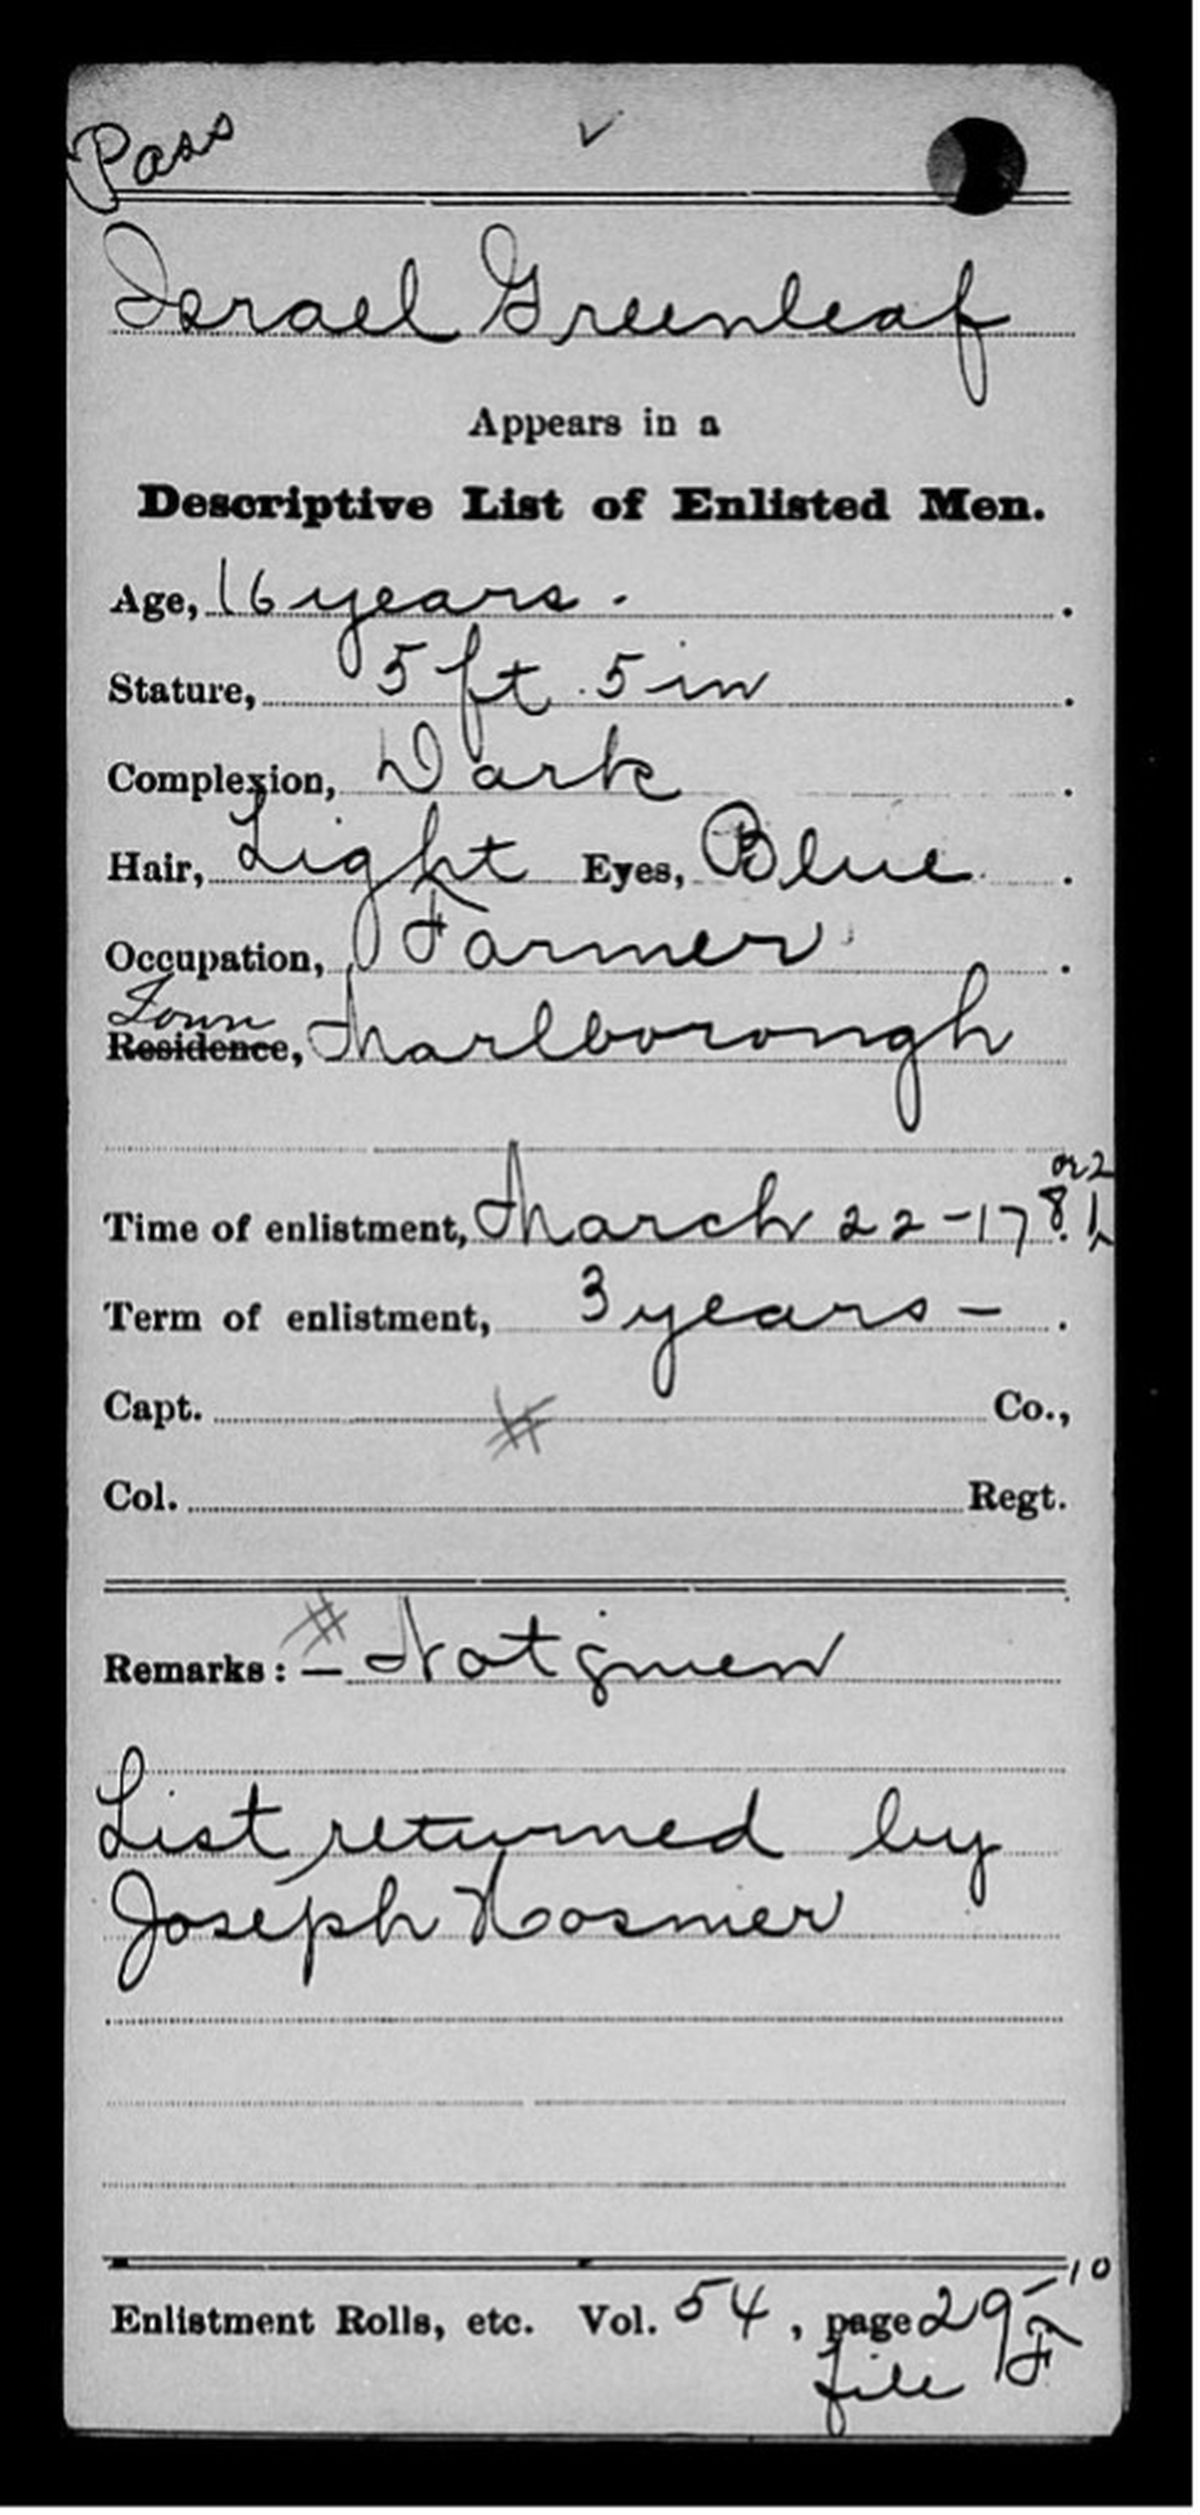 Pass
Israel Greenleaf
Appears in a
Descriptive List of Enlisted Men.
Age, 16 years.
Stature, 5 ft. 5 in.
Complexion, Dark.
Hair, Light Eyes, Blue.
Occupation, Farmer.
Town
Residence, Marlborough
or 2
Time of enlistment, March 22-1781
Term of enlistment, 3 years-.
Capt. # Co.,
Col. Regt.
#
Remarks:— Not given
List returned by
Joseph Hosmer
Enlistment Rolls, etc. Vol. 54, page 29
file